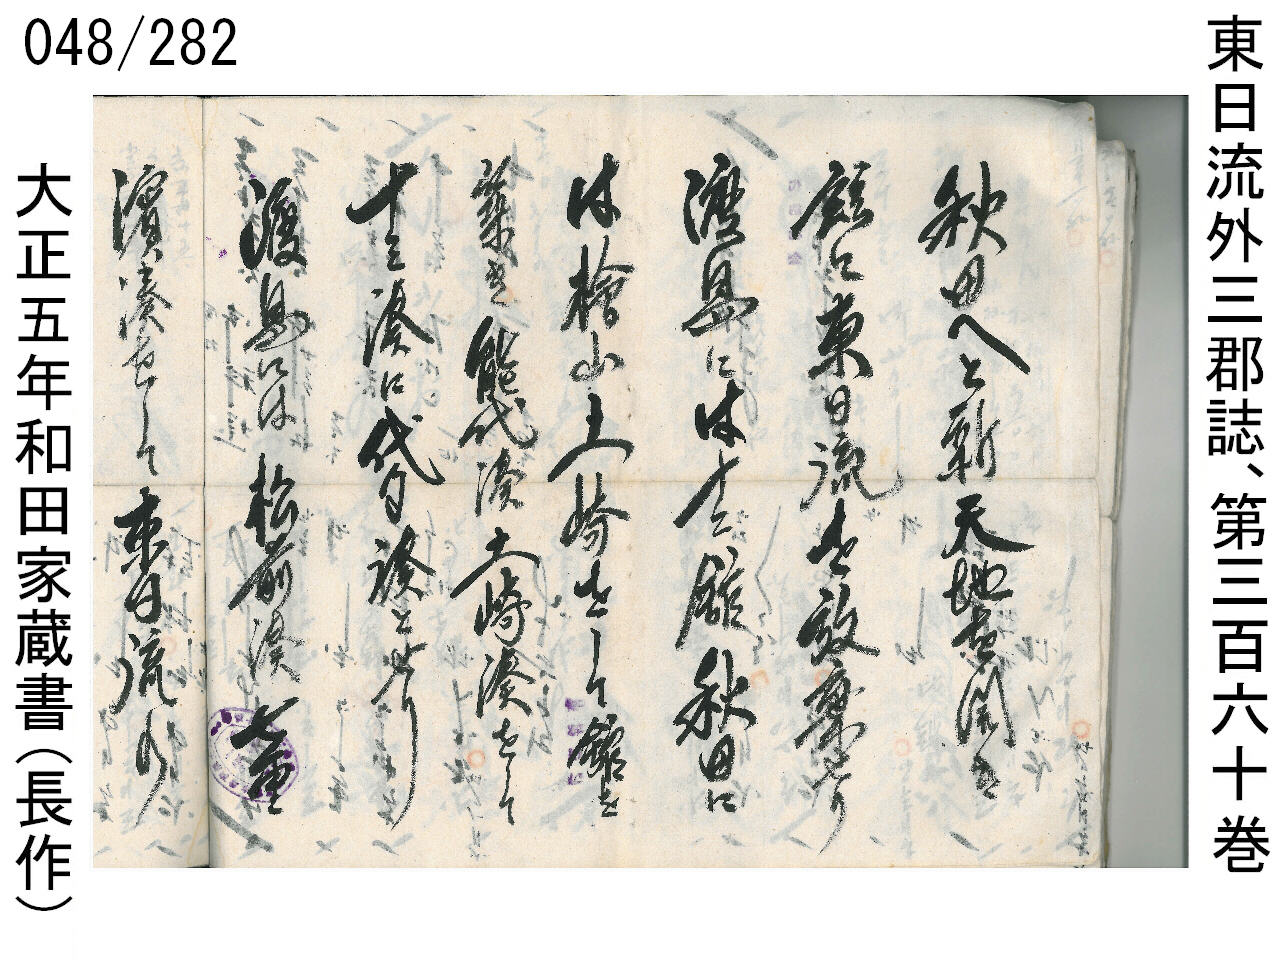 048/282
東日流外三郡誌、第三百六十巻
秋田へと新天地を開き
館に東日流を放棄せり
湾島には大館秋田に
は檜山土崎をして館を
築き能代湊土崎湊をして
十三湊に代る湊とせり
渡島には松前湊七重
濱湊をして東日流の
大正五年和田家蔵書(長作)